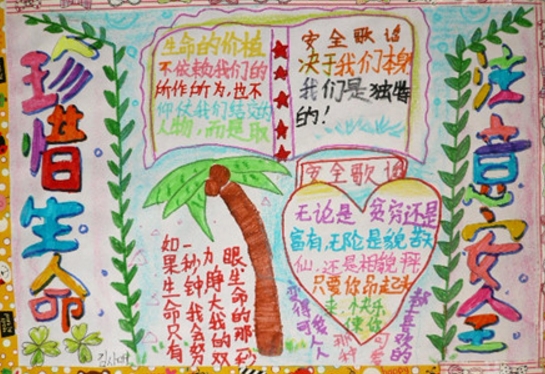 珍惜生命
生命的价值
不依赖我们的
所作所为,也不
仰仗我们结交的
人物,而是取
安全歌谣
决于我们本身
我们是独特
的!
注意安全
安全歌谣
无论是 贫穷还是
富有,无论是貌若天
仙,还是相貌平
只要你昂起头
来,快乐
使你
变得可爱
人人都喜欢的
那种可爱
如果生命只有
一秒钟我会努
力睁大我的双
眼,生命的那